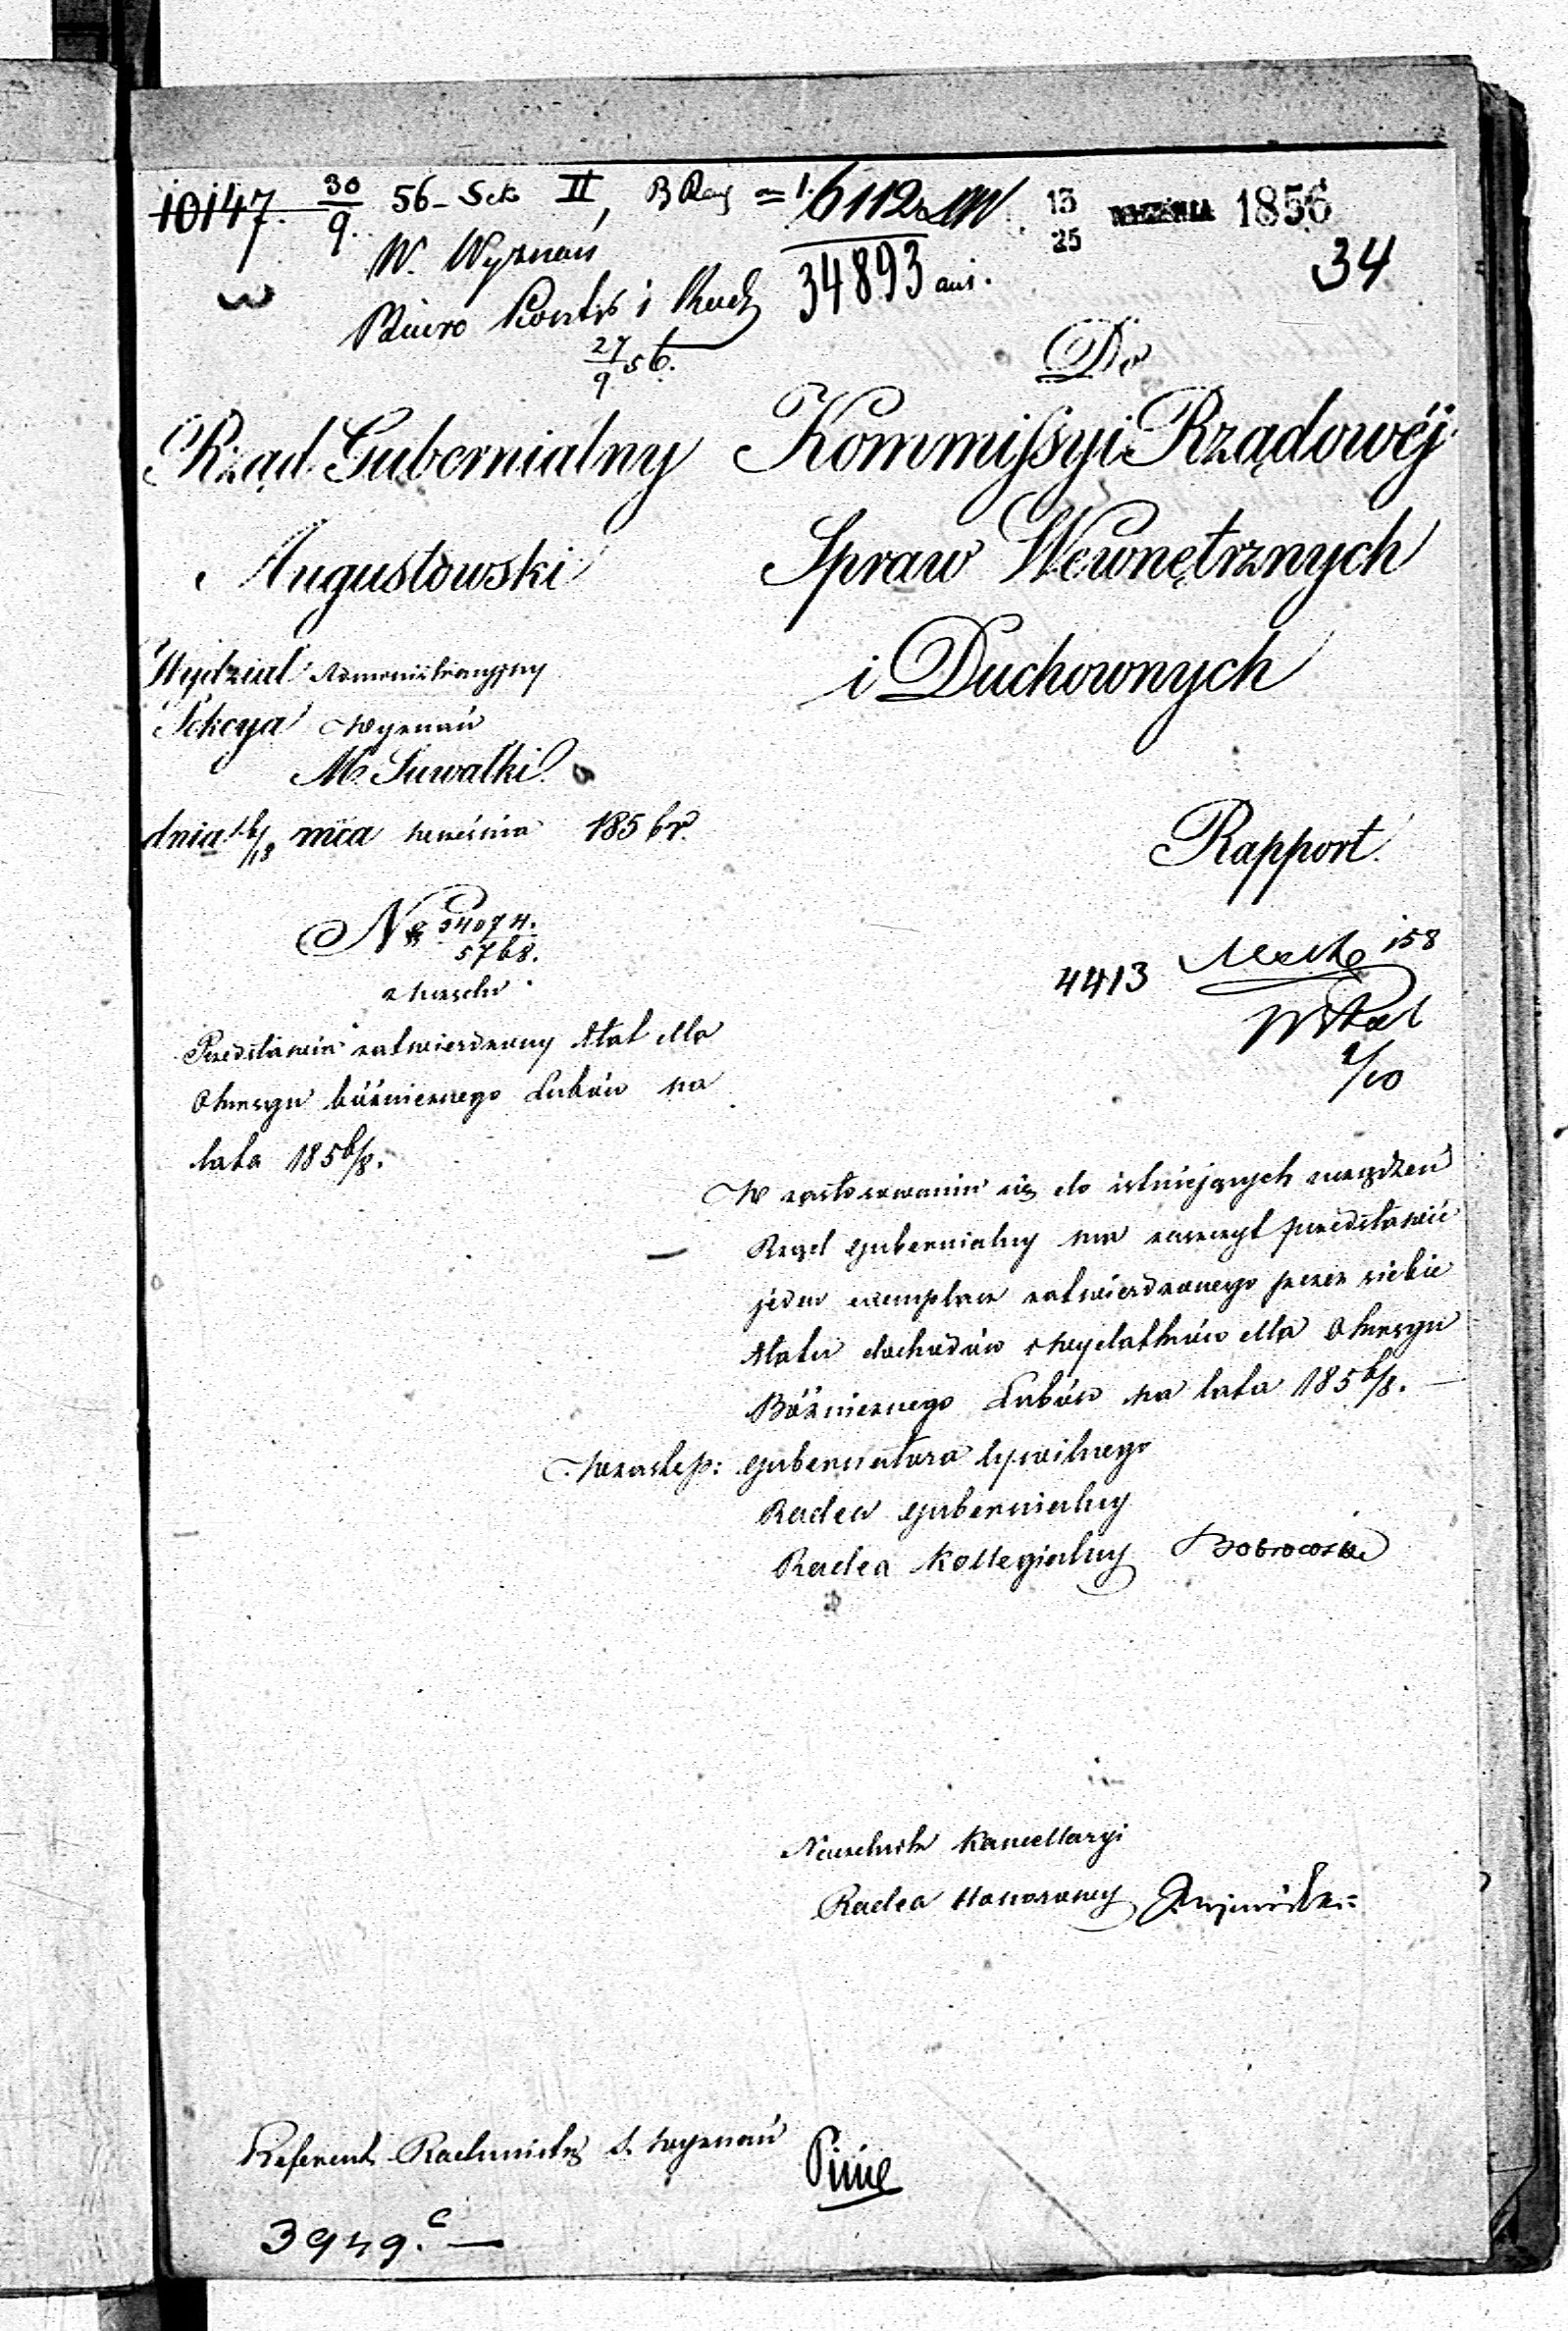 10147. 30/9. 56 - Sek II, B Rej = 16112
13/25 WRZEŚNIA 1856
W. Wyznań
34893
34
Biuro Kontr i Rach
27/9 56.
Do
Rząd Gubernialny
Augustowski
Kommissyi Rządowéj
Spraw Wewnętrznych
i Duchownych
Wydział Administracyjny
Sekcya Wyznań
M. Suwałki
dnia 6/18 mca września 1856 r.
Rapport.
№ 34074.
5768.
z kursem
4413
158
2/10
Przedstawia zatwierdzony Etat dla
Okręgu bóżnicznego Lubów na
lata 1856/8.
W zastosowaniu się do istniejących urządzeń
Rząd Gubernialny ma zaszczyt przedstawić
jeden exemplarz zatwierdzonego przez siebie
Etatu dochodów i wydatków dla Okręgu
Bóżnicznego Lubów na lata 1856/8. —
w zastęp: Gubernatora Cywilnego
Radca Gubernialny
Radca Kollegialny
Naczelnik Kancellaryi
Radca Honorowy
Referent Rachmistrz S. Wyznań
3949. c —